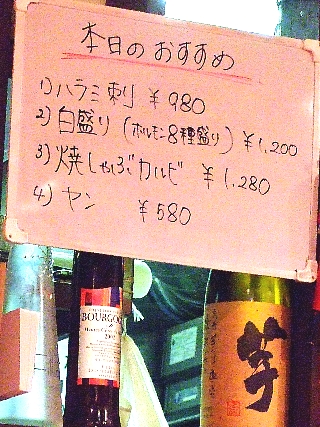 本日のおすすめ
1) ハラミ刺 ¥980
2) 白盛り (ホルモン8種盛り) ¥1,200
3) 焼しゃぶカルビ ¥1,280
4) ヤン ¥580
BOURGO
芋